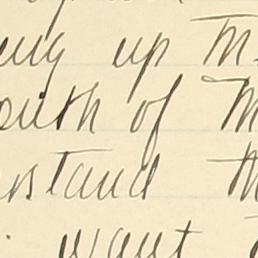 ing up M
outh of M
rstand th
want